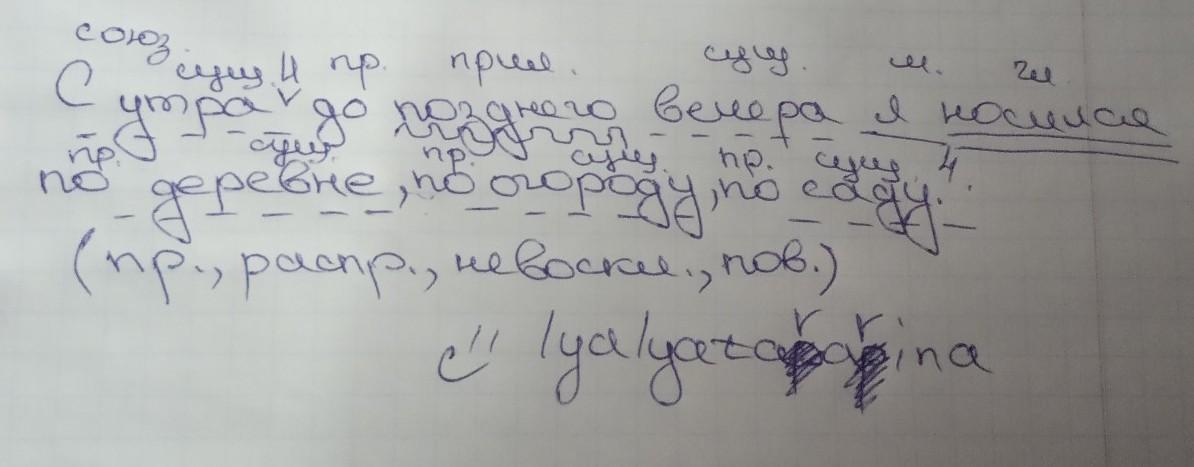 союз.
сущ. 4 пр. прил. сущ. м. гл
С утра до позднего вечера я носился
пр. сущ. пр. сущ. пр. сущ. 4
по деревне, по огороду, по саду.
(пр., распр., невоскл., пов.)
lyalyatararina